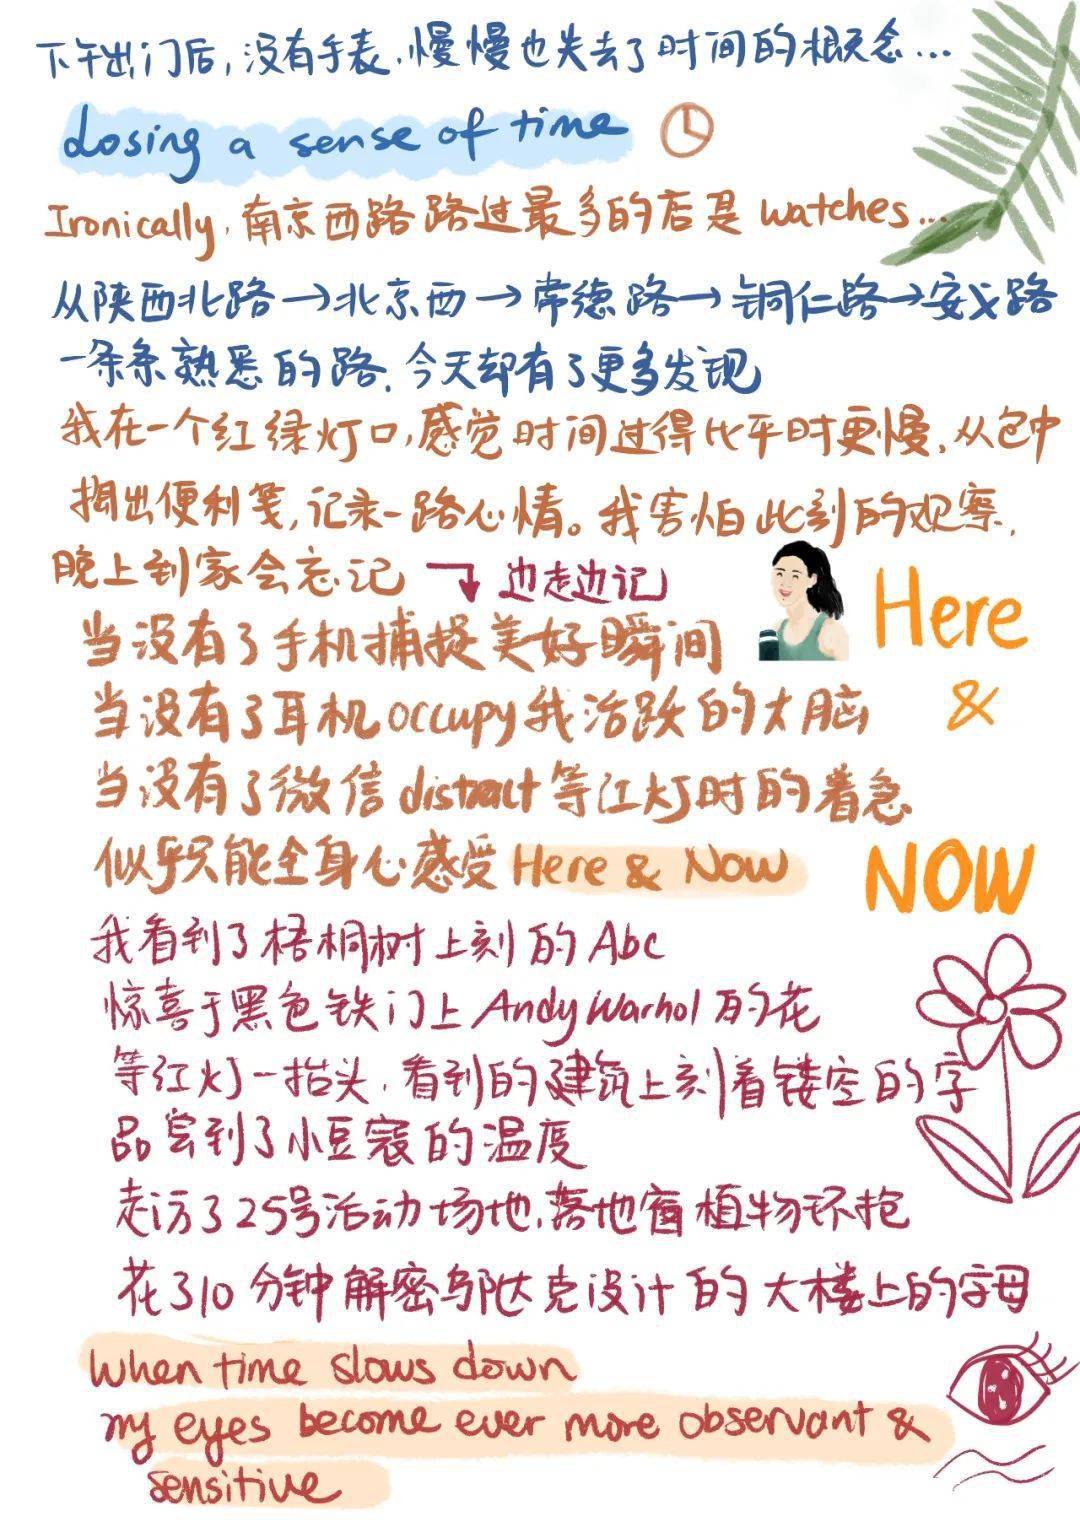 下午出门后，没有手表，慢慢也失去了时间的概念…
Losing a sense of time
Ironically, 南京西路路过最多的店是 watches…
从陕西北路→北京西→常德路→铜仁路→安义路
一条条熟悉的路，今天却有了更多发现
我在一个红绿灯口，感觉时间过得比平时更慢，从包中
掏出便利笺，记录一路心情。我害怕此刻的观察，
晚上到家会忘记
边走边记
当没有了手机捕捉美好瞬间
当没有了耳机occupy我活跃的大脑
当没有了微信distract等红灯时的着急
似乎只能全身心感受 Here & Now
Here
&
NOW
我看到了梧桐树上刻的Abc
惊喜于黑色铁门上Andy Warhol的花
等红灯一抬头，看到的建筑上刻着镂空的字
品尝到了小豆蔻的温度
走访了25号活动场地，落地窗植物环抱
花了10分钟解密邬达克设计的大楼上的字母
When time slows down
my eyes become ever more observant &
sensitive